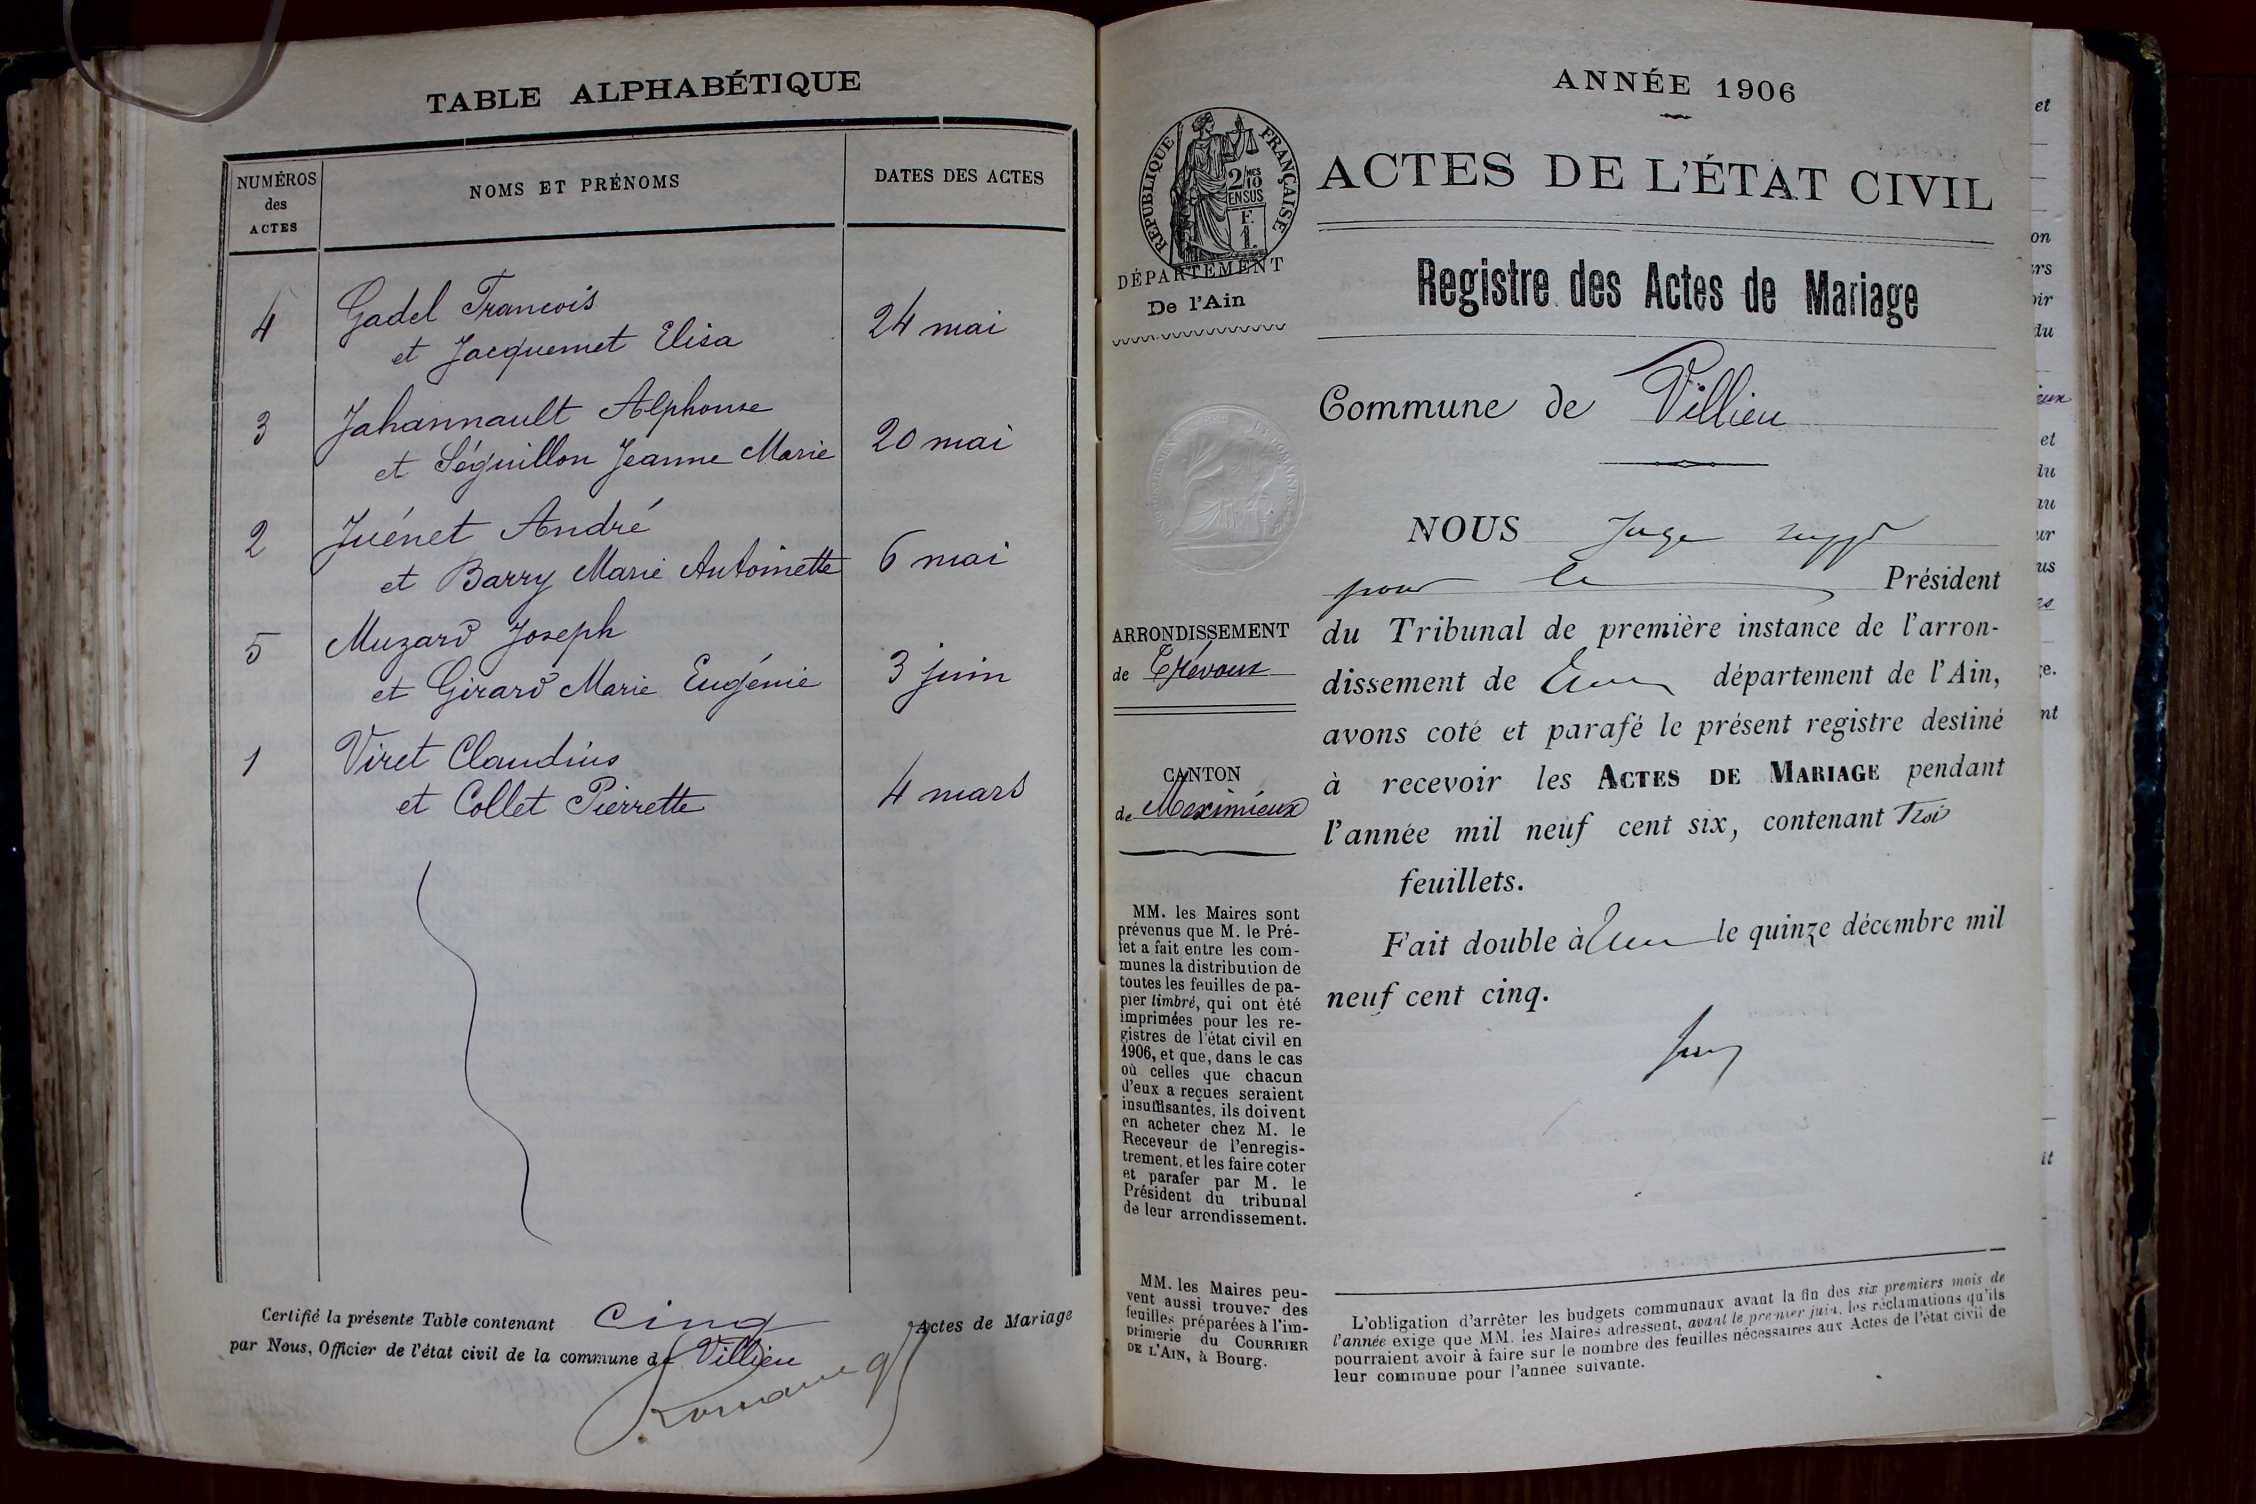 TABLE ALPHABÉTIQUE
NUMÉROS
des
ACTES
NOMS ET PRÉNOMS
DATES DES ACTES
4
Gadel Francois
et Jacquemet Elisa
24 mai
3
Jahannault Alphonse
et Séguillon Jeanne Marie
20 mai
2
Juénet André
et Barry Marie Antoinette
6 mai
5
Muzard Joseph
et Girard Marie Eugénie
3 juin
1
Viret Claudius
et Collet Pierrette
4 mars
Certifié la présente Table contenant cinq Actes de Mariage
par Nous, Officier de l'état civil de la commune de Villieu
ANNÉE 1906
RÉPUBLIQUE FRANÇAISE
2/10
EN SUS
F.
1.
DÉPARTEMENT
De l'Ain
ACTES DE L'ÉTAT CIVIL
Registre des Actes de Mariage
Commune de Villieu
NOUS Juge suppt
pour le Président
du Tribunal de première instance de l'arron-
dissement de département de l'Ain,
avons coté et parafé le présent registre destiné
à recevoir les ACTES DE MARIAGE pendant
l'année mil neuf cent six, contenant Trois
feuillets.
Fait double à le quinze décembre mil
neuf cent cinq.
ARRONDISSEMENT
de Trévoux
CANTON
de Meximieux
MM. les Maires sont
prévenus que M. le Pré-
fet a fait entre les com-
munes la distribution de
toutes les feuilles de pa-
pier timbré, qui ont été
imprimées pour les re-
gistres de l'état civil en
1906, et que, dans le cas
où celles que chacun
d'eux a reçues seraient
insuffisantes, ils doivent
en acheter chez M. le
Receveur de l'enregis-
trement, et les faire coter
et parafer par M. le
Président du tribunal
de leur arrondissement.
MM. les Maires peu-
vent aussi trouver des
feuilles préparées à l'im-
primerie du COURRIER
DE L'AIN, à Bourg.
L'obligation d'arrêter les budgets communaux avant la fin des six premiers mois de
l'année exige que MM. les Maires adressent, avant le premier juin, les réclamations qu'ils
pourraient avoir à faire sur le nombre des feuilles nécessaires aux Actes de l'état civil de
leur commune pour l'année suivante.